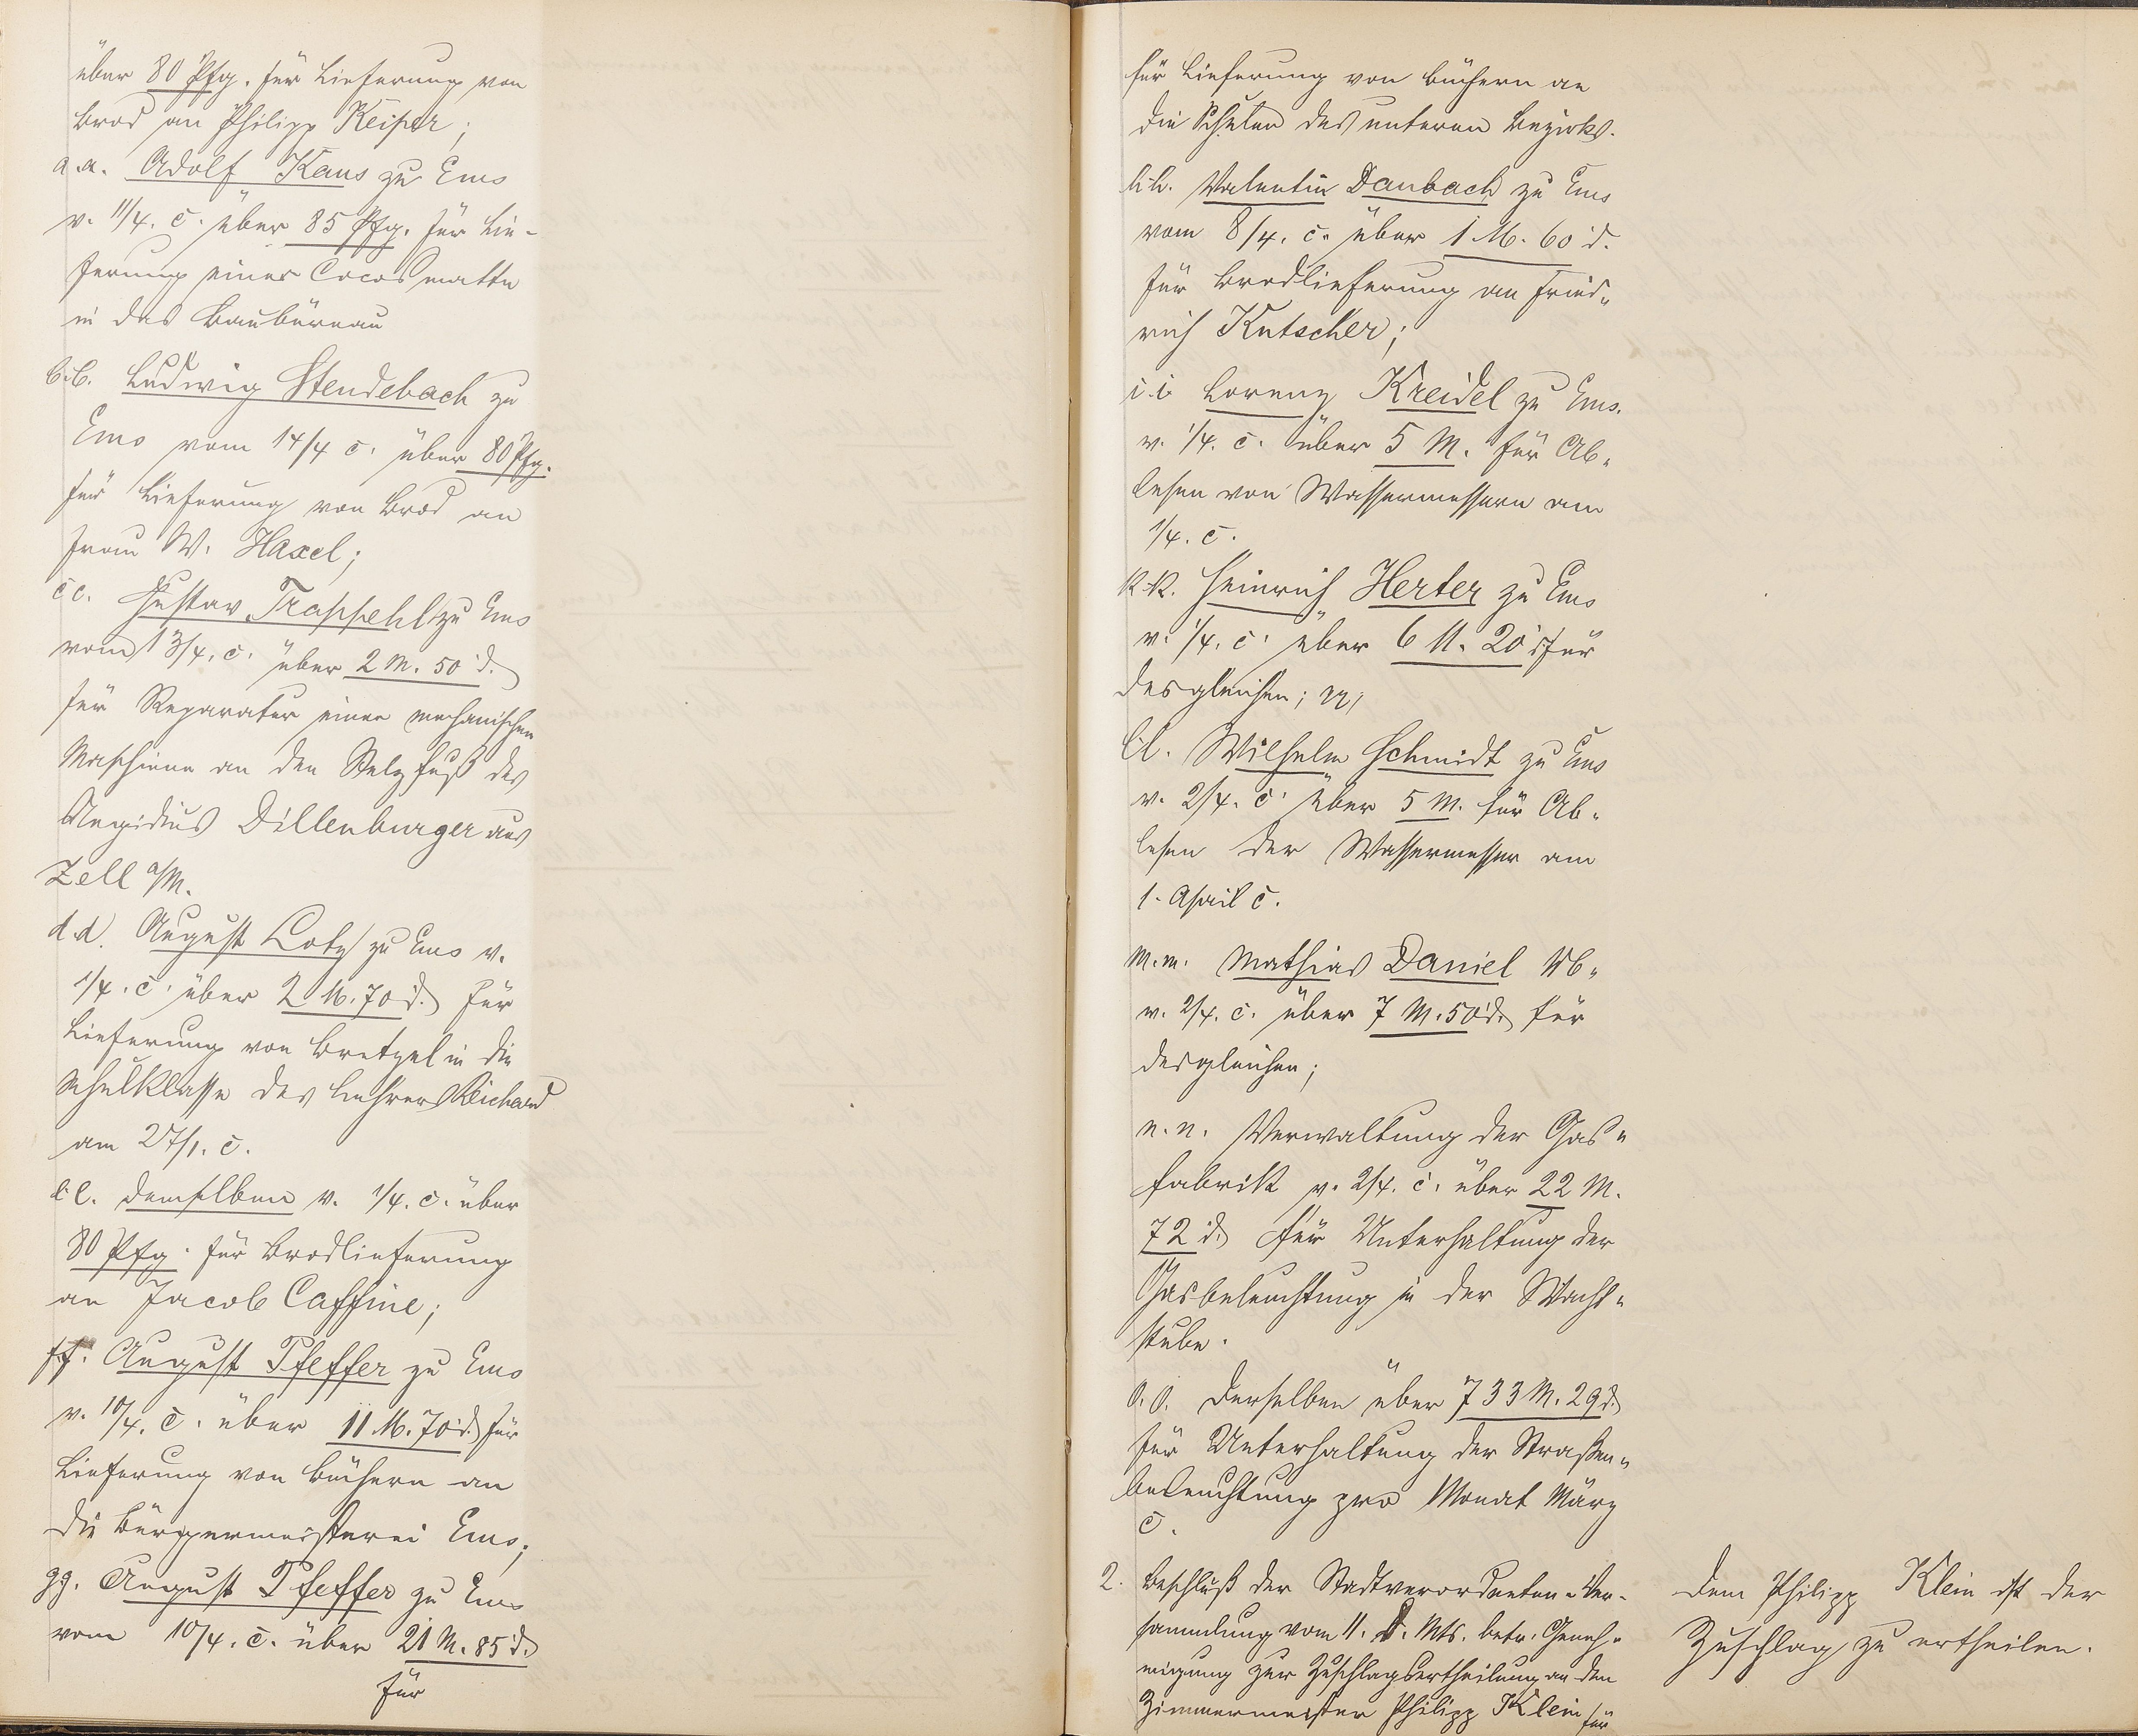 über 80 Pfg. für Lieferung von
Brod an Philipp Keiper;
a.a. Adolf Kaus zu Ems
v. 11/4. c. über 85 Pfg. für Lie-
ferung einer Cocosmatte
in das Baubüreau
b.b. Ludwig Stendebach zu
Ems vom 14/4 c. über 80 Pfg.
für Lieferung von Brod an
Frau W. Haxel;
cc. Gustav Trappehl zu Ems
vom 13/4. c. über 2 M. 50 d.
für Reparatur einer mechanischen
Maschiene an den Stelzfuß des
Aegidius Dillenburger aus
Zell a/M.
d.d. August Loty zu Ems v.
1/4. c. über 2 M. 70 d. für
Lieferung von Bretzel in die
Schulklasse des Lehrers Reichard
am 27/1. c.
e.e. demselben v. 1/4. c. über
80 Pfg. für Brodlieferung
an Jacob Caffine;
f.f. August Pfeffer zu Ems
v. 10/4. c. über 11 M. 70 d. für
Lieferung von Büchern an
die Bürgermeisterei Ems;
gg. August Pfeffer zu Ems
vom 10/4. c. über 21 M. 85 d.
für
für Lieferung von Büchern an
die Schulen des unteren Bezirks.
h.h. Valentin Daubach zu Ems
vom 8/4. c. über 1 M. 60 d.
für Brodlieferung an Fried-
rich Kutscher;
i.i. Lorenz Kreidel zu Ems.
v. 1/4. c. über 5 M. für Ab-
lesen von Wassermessern am
1/4. c.
k.k. Heinrich Herter zu Ems
v. 1/4. c. über 6 M. 20 d für
desgleichen;
l.l. Wilhelm Schmidt zu Ems
v. 2/4. c. über 5 M. für Ab-
lesen der Wassermesser am
1. April c.
m.m. Mathias Daniel
v. 2/4. c. über 7 M. 50 d. für
desgleichen;
n.n. Verwaltung der Gas-
fabrik v. 2/4. c. über 22 M.
72 d. für Unterhaltung der
Gasbeleuchtung in der Wacht-
stube.
o.o. Derselben über 733 M. 29 d.
für Unterhaltung der Straßen-
beleuchtung pro Monat März
c.
2. Beschluß der Stadtverordneten-Ver-
sammlung vom 11. d. Mts. betr. Geneh-
migung zur Zuschlagsertheilung an den
Zimmermeister Philipp Klein für
Dem Philipp Klein ist der
Zuschlag zu ertheilen.